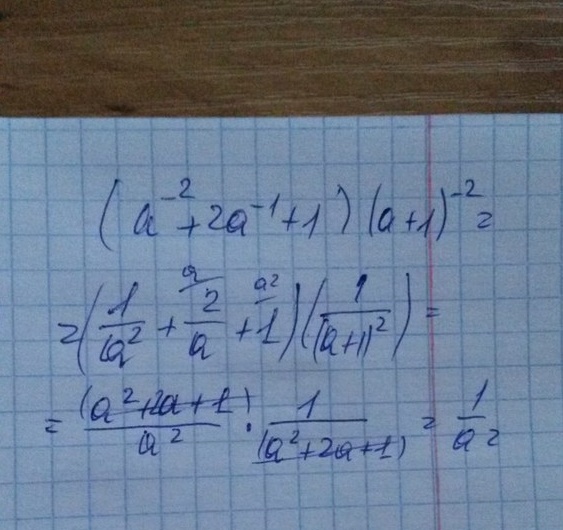 (a⁻² + 2a⁻¹ + 1)(a+1)⁻² =
= (1/a² + 2/a ᵃ + 1 ᵃ²)(1/(a+1)²) =
= (a²+2a+1)/a² · 1/(a²+2a+1) = 1/a²